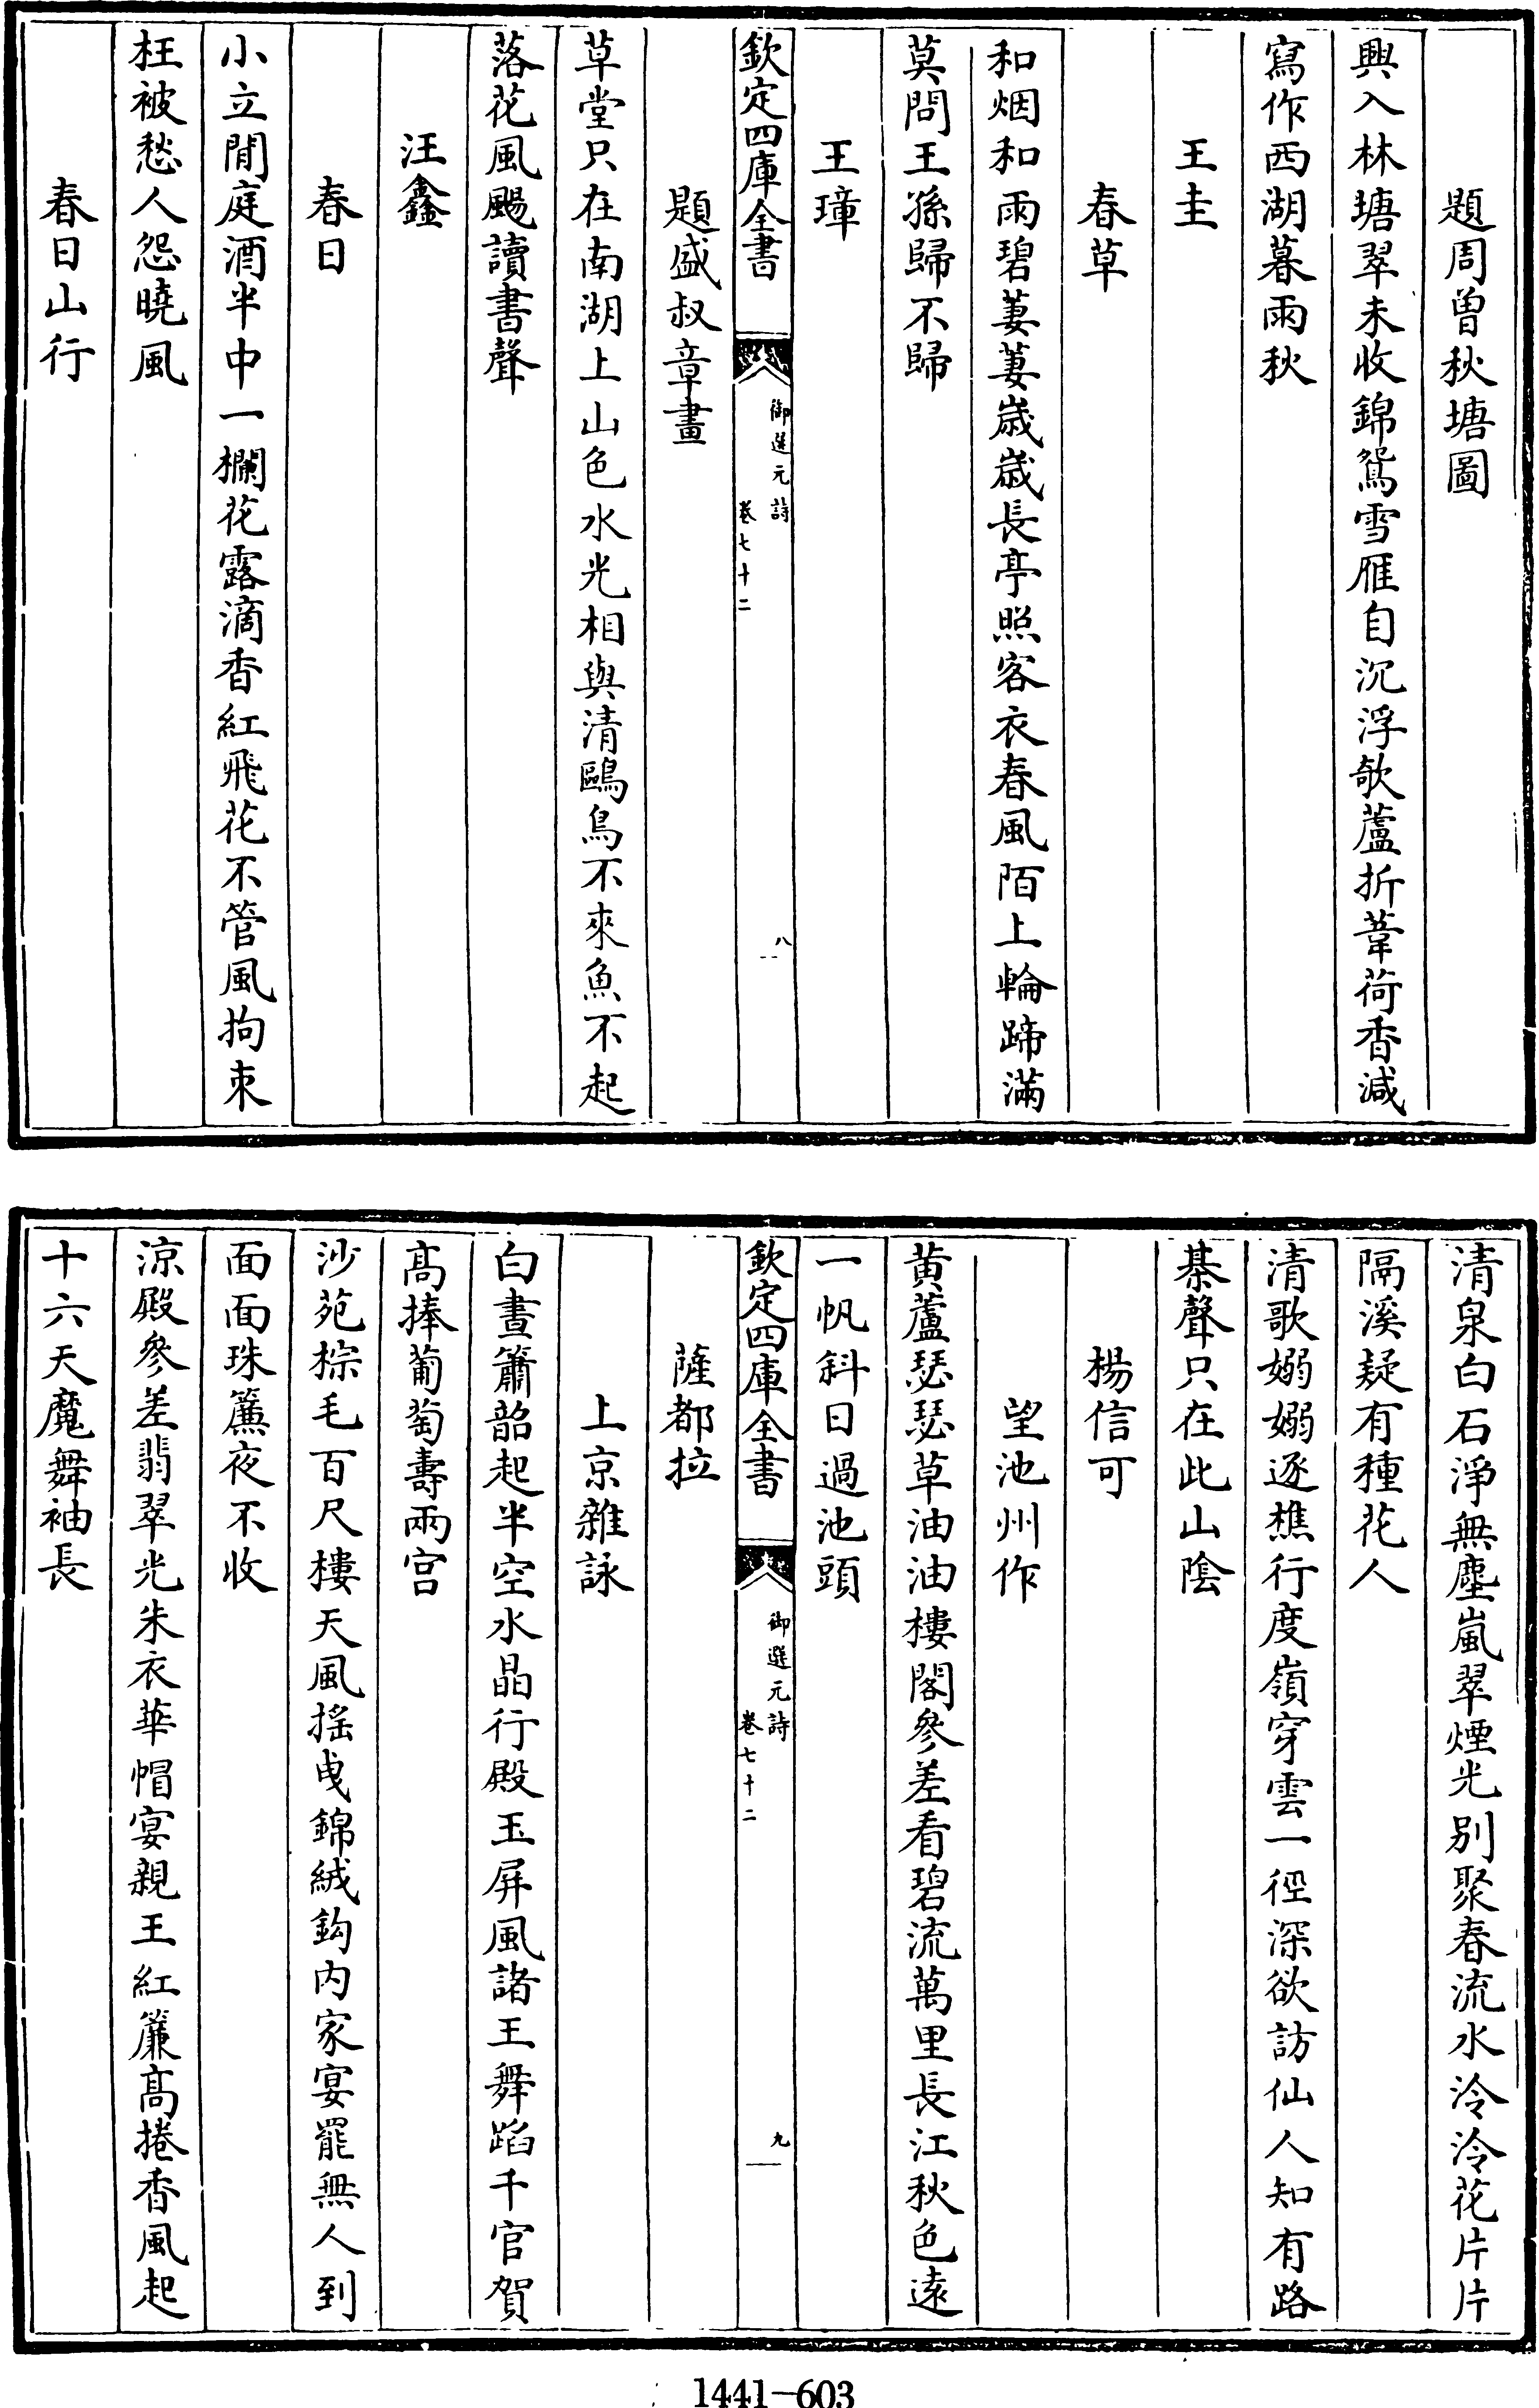 題周曾秋塘圖
興入林塘翠未收錦鴛雪雁自沉浮欹蘆折葦荷香減
寫作西湖暮雨秋
王圭
春草
和烟和雨碧萋萋歲歲長亭照客衣春風陌上輪蹄滿
莫問王孫歸不歸
王璋
欽定四庫全書
御選元詩
卷七十二
八
題盛叔章畫
草堂只在南湖上山色水光相與清鷗鳥不來魚不起
落花風颺讀書聲
汪鑫
春日
小立閒庭酒半中一欄花露滴香紅飛花不管風拘束
枉被愁人怨曉風
春日山行
清泉白石淨無塵嵐翠煙光别聚春流水泠泠花片片
隔溪疑有種花人
清歌嫋嫋逐樵行度嶺穿雲一徑深欲訪仙人知有路
棊聲只在此山隂
楊信可
望池州作
黄蘆瑟瑟草油油樓閣參差看碧流萬里長江秋色逺
一帆斜日過池頭
欽定四庫全書
御選元詩
卷七十二
九
薩都拉
上京雜詠
白晝簫韶起半空水晶行殿玉屏風諸王舞蹈千官賀
髙捧葡萄壽兩宫
沙苑棕毛百尺樓天風摇曵錦絨鈎内家宴罷無人到
面面珠簾夜不收
涼殿參差翡翠光朱衣華帽宴親王紅簾髙捲香風起
十六天魔舞袖長
1441—603